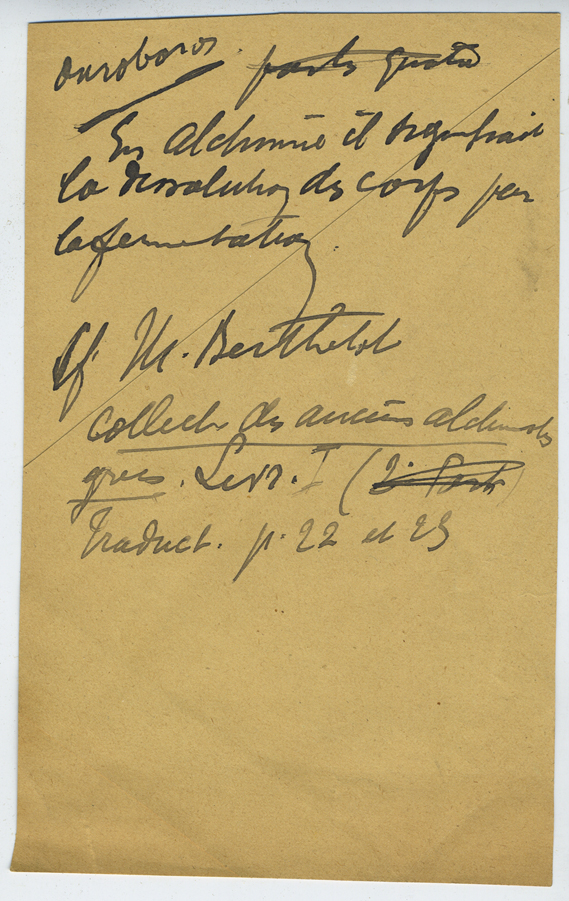 ouroboros.
En alchimie il signifiait
la dissolution des corps par
la fermentation
Cf. M. Berthelot
collect. des anciens alchimistes
grecs. Livr. I (2e Part)
Traduct. p. 22 et 23